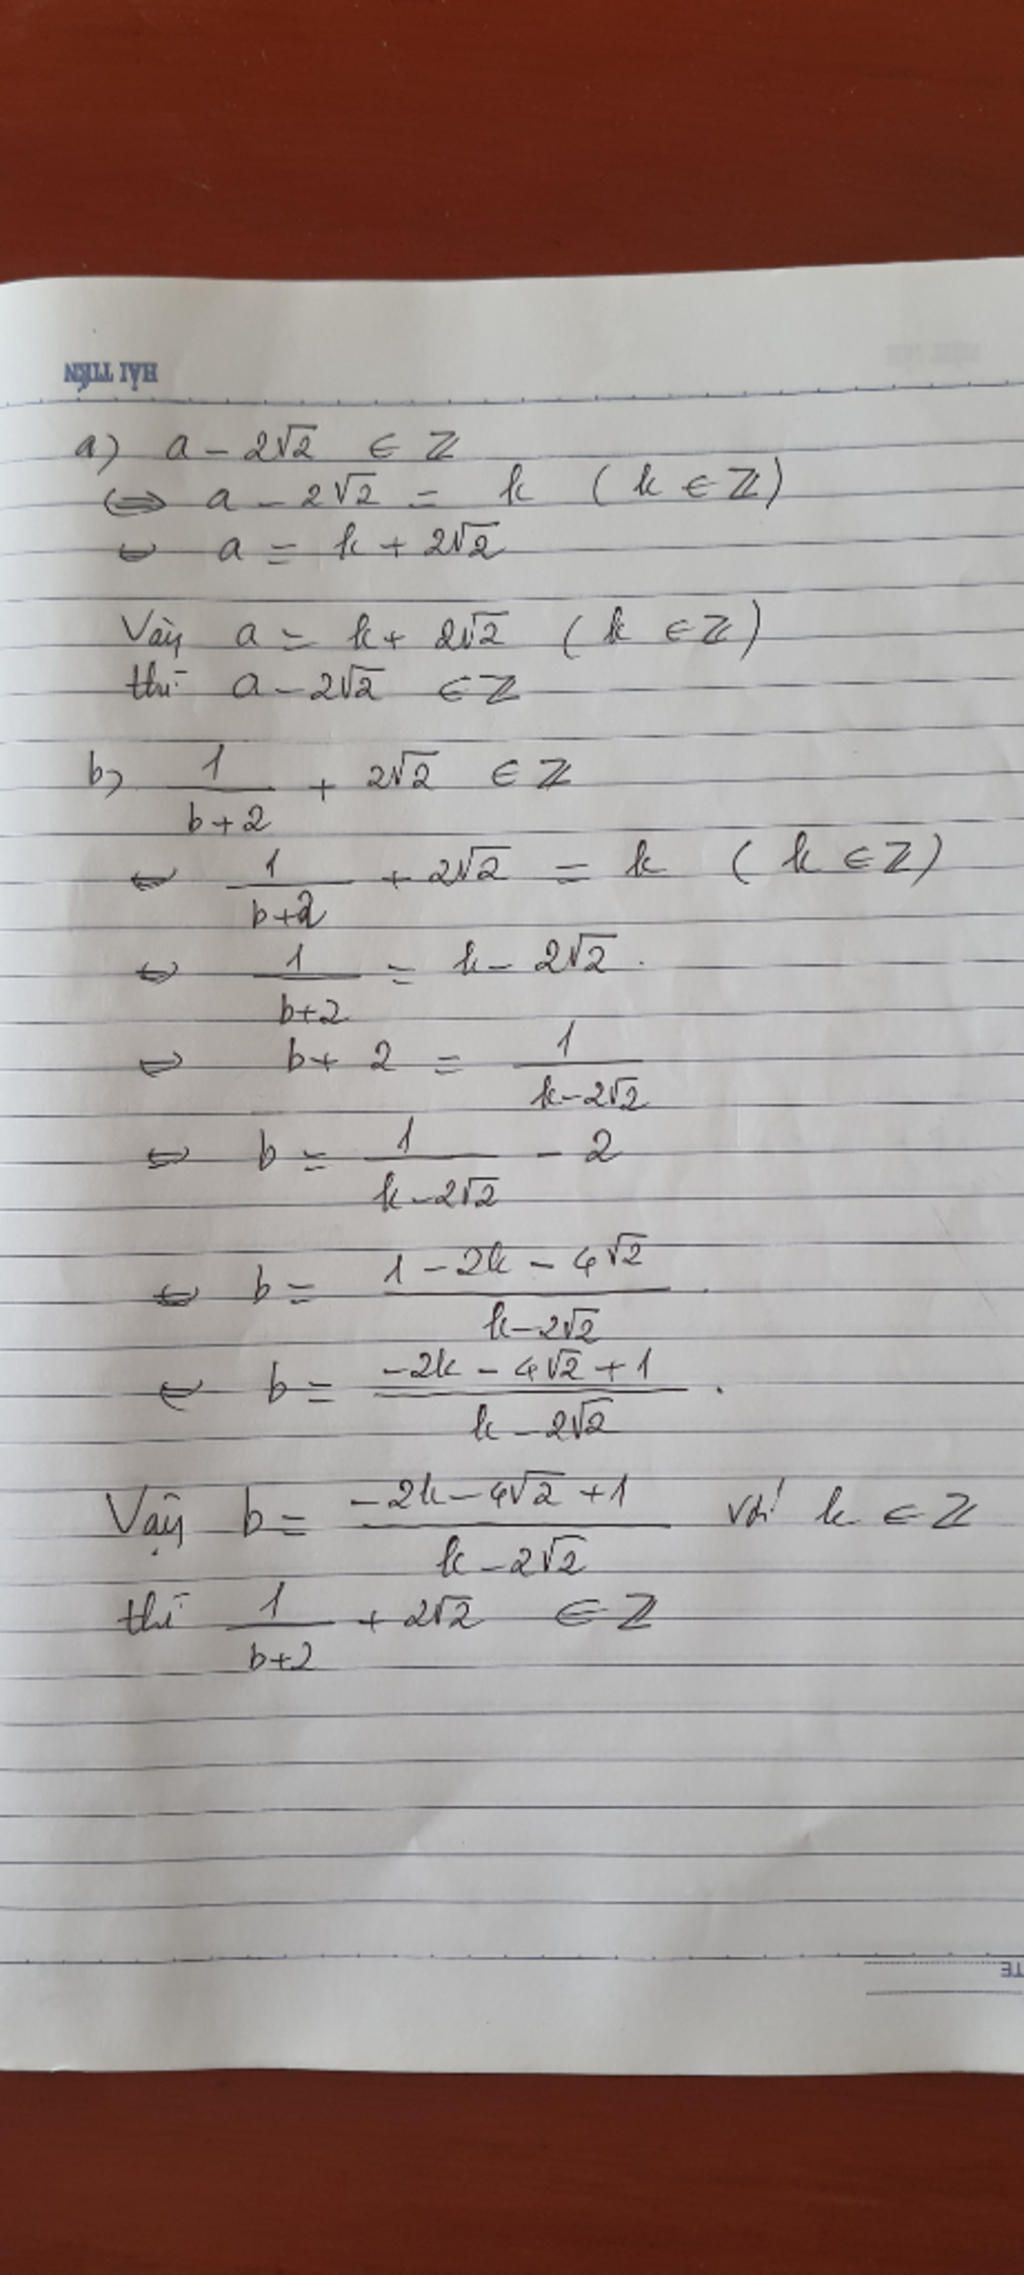 HẢI TIẾN
a) a - 2√2 ∈ ℤ
⇔ a - 2√2 = k ( k ∈ ℤ)
⇔ a = k + 2√2
Vậy a = k + 2√2 ( k ∈ ℤ)
thì a - 2√2 ∈ ℤ
b) 1/(b+2) + 2√2 ∈ ℤ
⇔ 1/(b+2) + 2√2 = k ( k ∈ ℤ)
⇔ 1/(b+2) = k - 2√2.
⇔ b + 2 = 1/(k-2√2)
⇔ b = 1/(k-2√2) - 2
⇔ b = (1 - 2k - 4√2)/(k-2√2).
⇔ b = (-2k - 4√2 + 1)/(k - 2√2).
Vậy b = (-2k - 4√2 + 1)/(k - 2√2) với k ∈ ℤ
thì 1/(b+2) + 2√2 ∈ ℤ